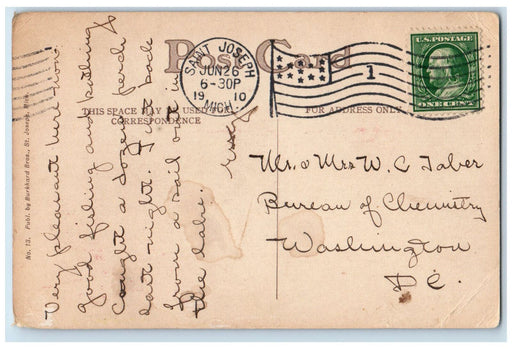 Post Card
SAINT JOSEPH
JUN 26
6-30P
19 10
MICH.
1
U.S. POSTAGE
ONE CENT
THIS SPACE MAY BE USED FOR
CORRESPONDENCE
FOR ADDRESS ONLY
Mr. & Mrs W. C Taber
Bureau of Chemistry
Washington
D C.
Very pleasant here now.
good fishing and bathing
Caught a dozen perch
last night. Just back
from a sail out in
the lake.
No. 13. Publ. by Burkhard Bros., St. Joseph, Mich.